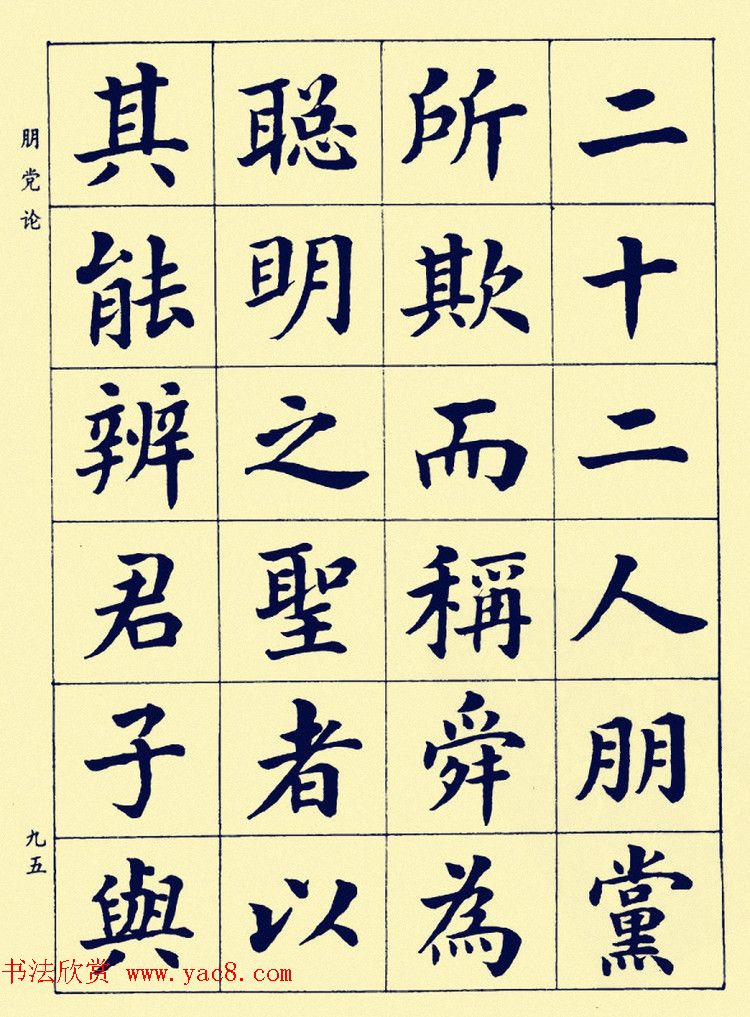 二十二人朋黨
所欺而稱舜為
聰明之聖者以
其能辨君子與
朋党论
九五
书法欣赏 www.yac8.com